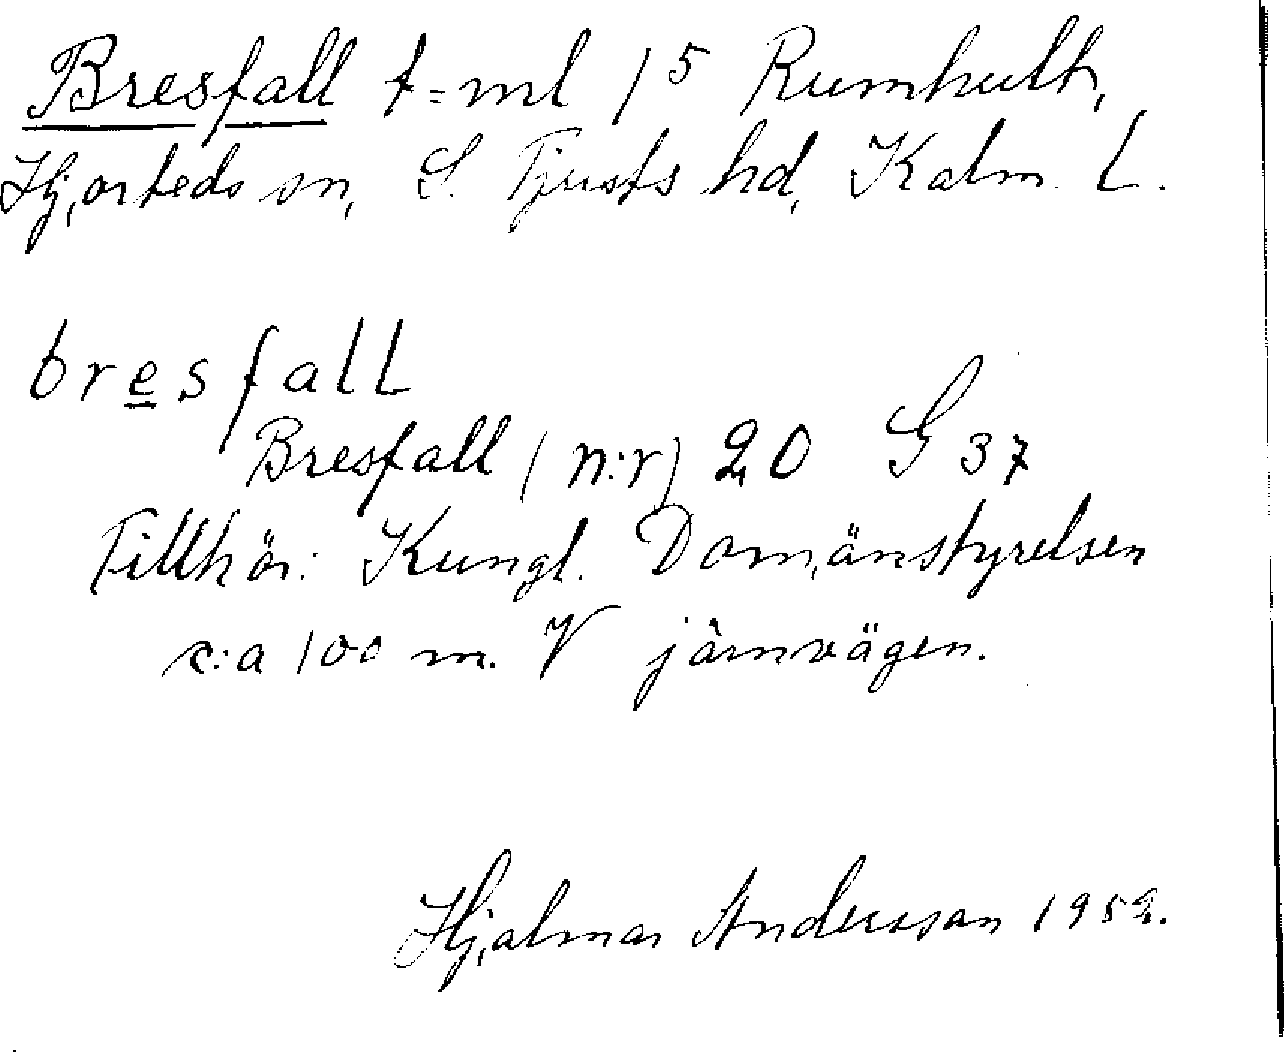 Bresfall t=ml 1⁵ Rumhult,
Hjorteds sn, S. Tjusts hd, Kalm. L.
bresfall
Bresfall (n:r) 20 G 37
Tillhör: Kungl. Domänstyrelsen
c:a 100 m. V järnvägen.
Hjalmar Andersson 1952.